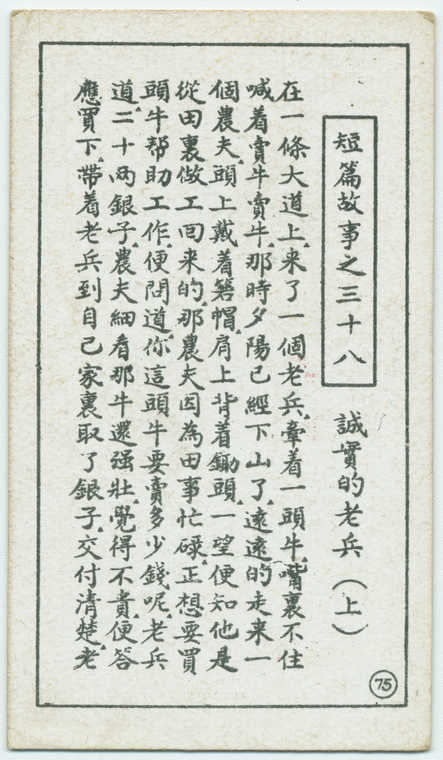 短篇故事之三十八
誠實的老兵（上）
在一條大道上、來了一個老兵、牽着一頭牛、嘴裏不住
喊着賣牛賣牛、那時夕陽已經下山了、遠遠的走來一
個農夫、頭上戴着箬帽、肩上背着鋤頭、一望便知他是
從田裏做工回來的、那農夫因為田事忙碌、正想要買
頭牛帮助工作、便問道、你這頭牛要賣多少錢呢、老兵
道、二十両銀子、農夫細看那牛還强壯、覺得不貴、便答
應買下、帶着老兵到自己家裏取了銀子、交付清楚、老
75